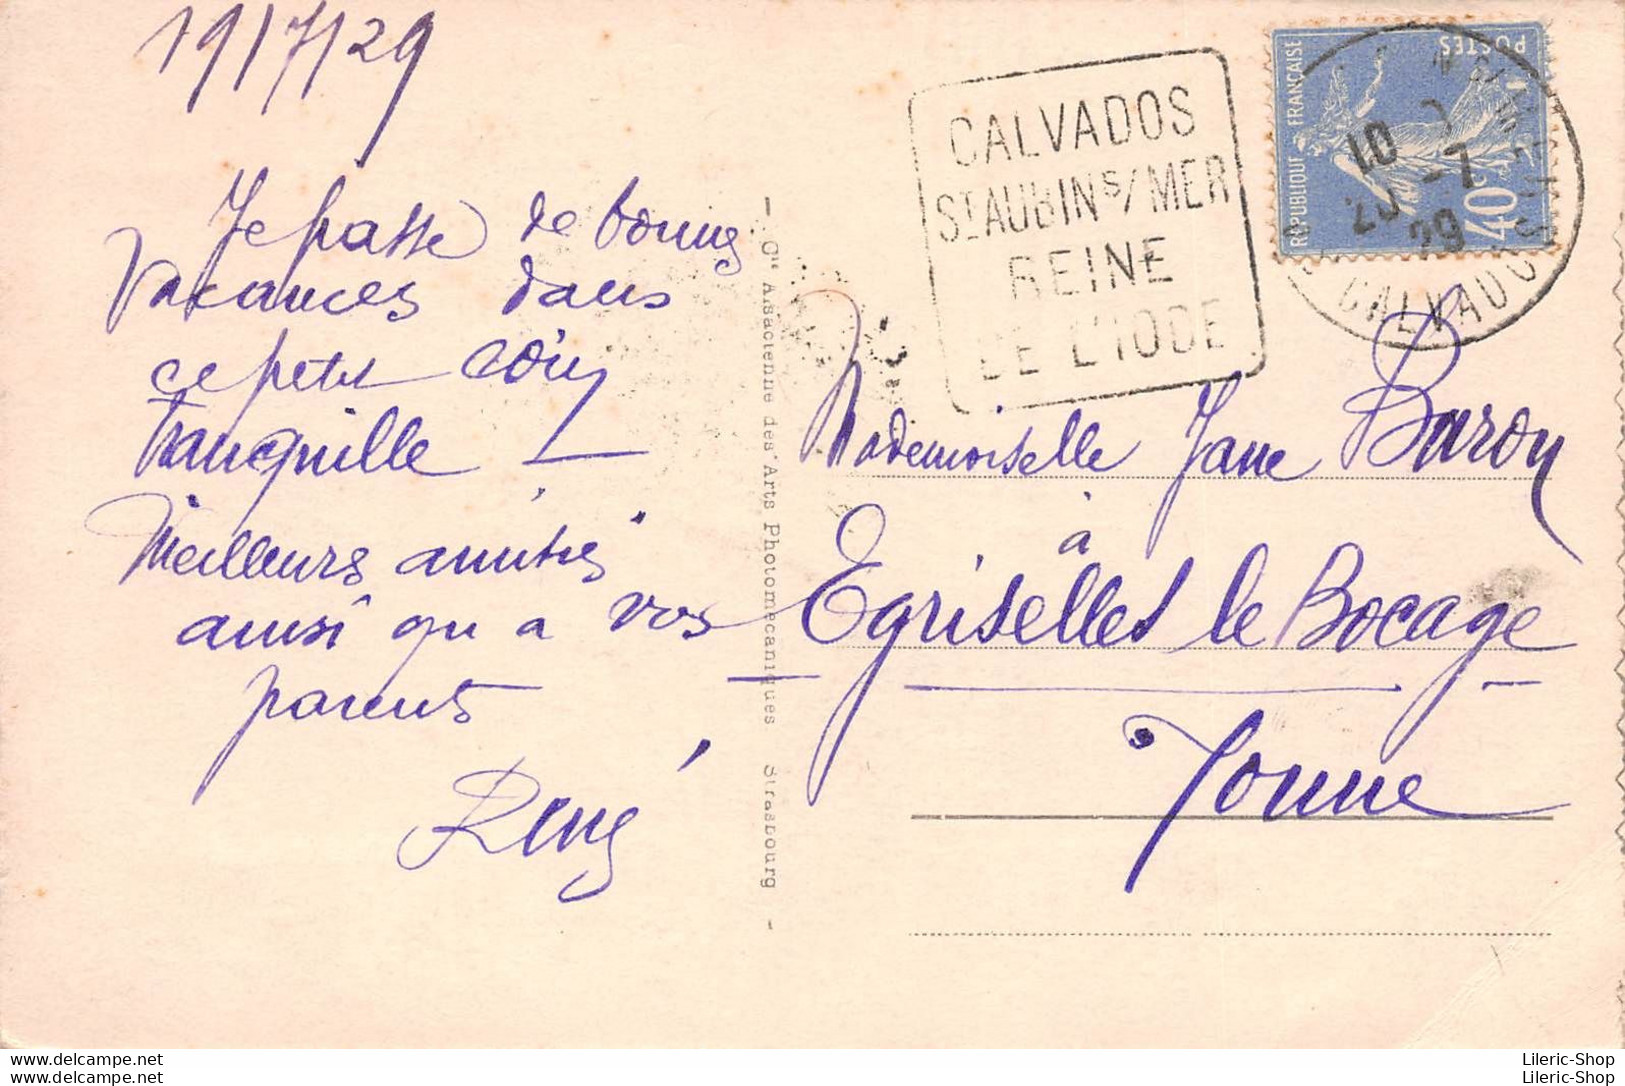 19/7/29
Je passe de bonnes
vacances dans
ce petit coin
tranquille —
Meilleurs amitiés
ainsi qu a vos
parents
René
- Cie Alsacienne des Arts Photomécaniques Strasbourg -
CALVADOS
ST AUBIN S/MER
REINE
DE L'IODE
REPUBLIQUE FRANÇAISE
POSTES
40c
10
20 -7
29
CALVADOS
Mademoiselle Jane Baron
à
Egriselles le Bocage
Yonne
www.delcampe.net
www.delcampe.net
Lileric-Shop
Lileric-Shop